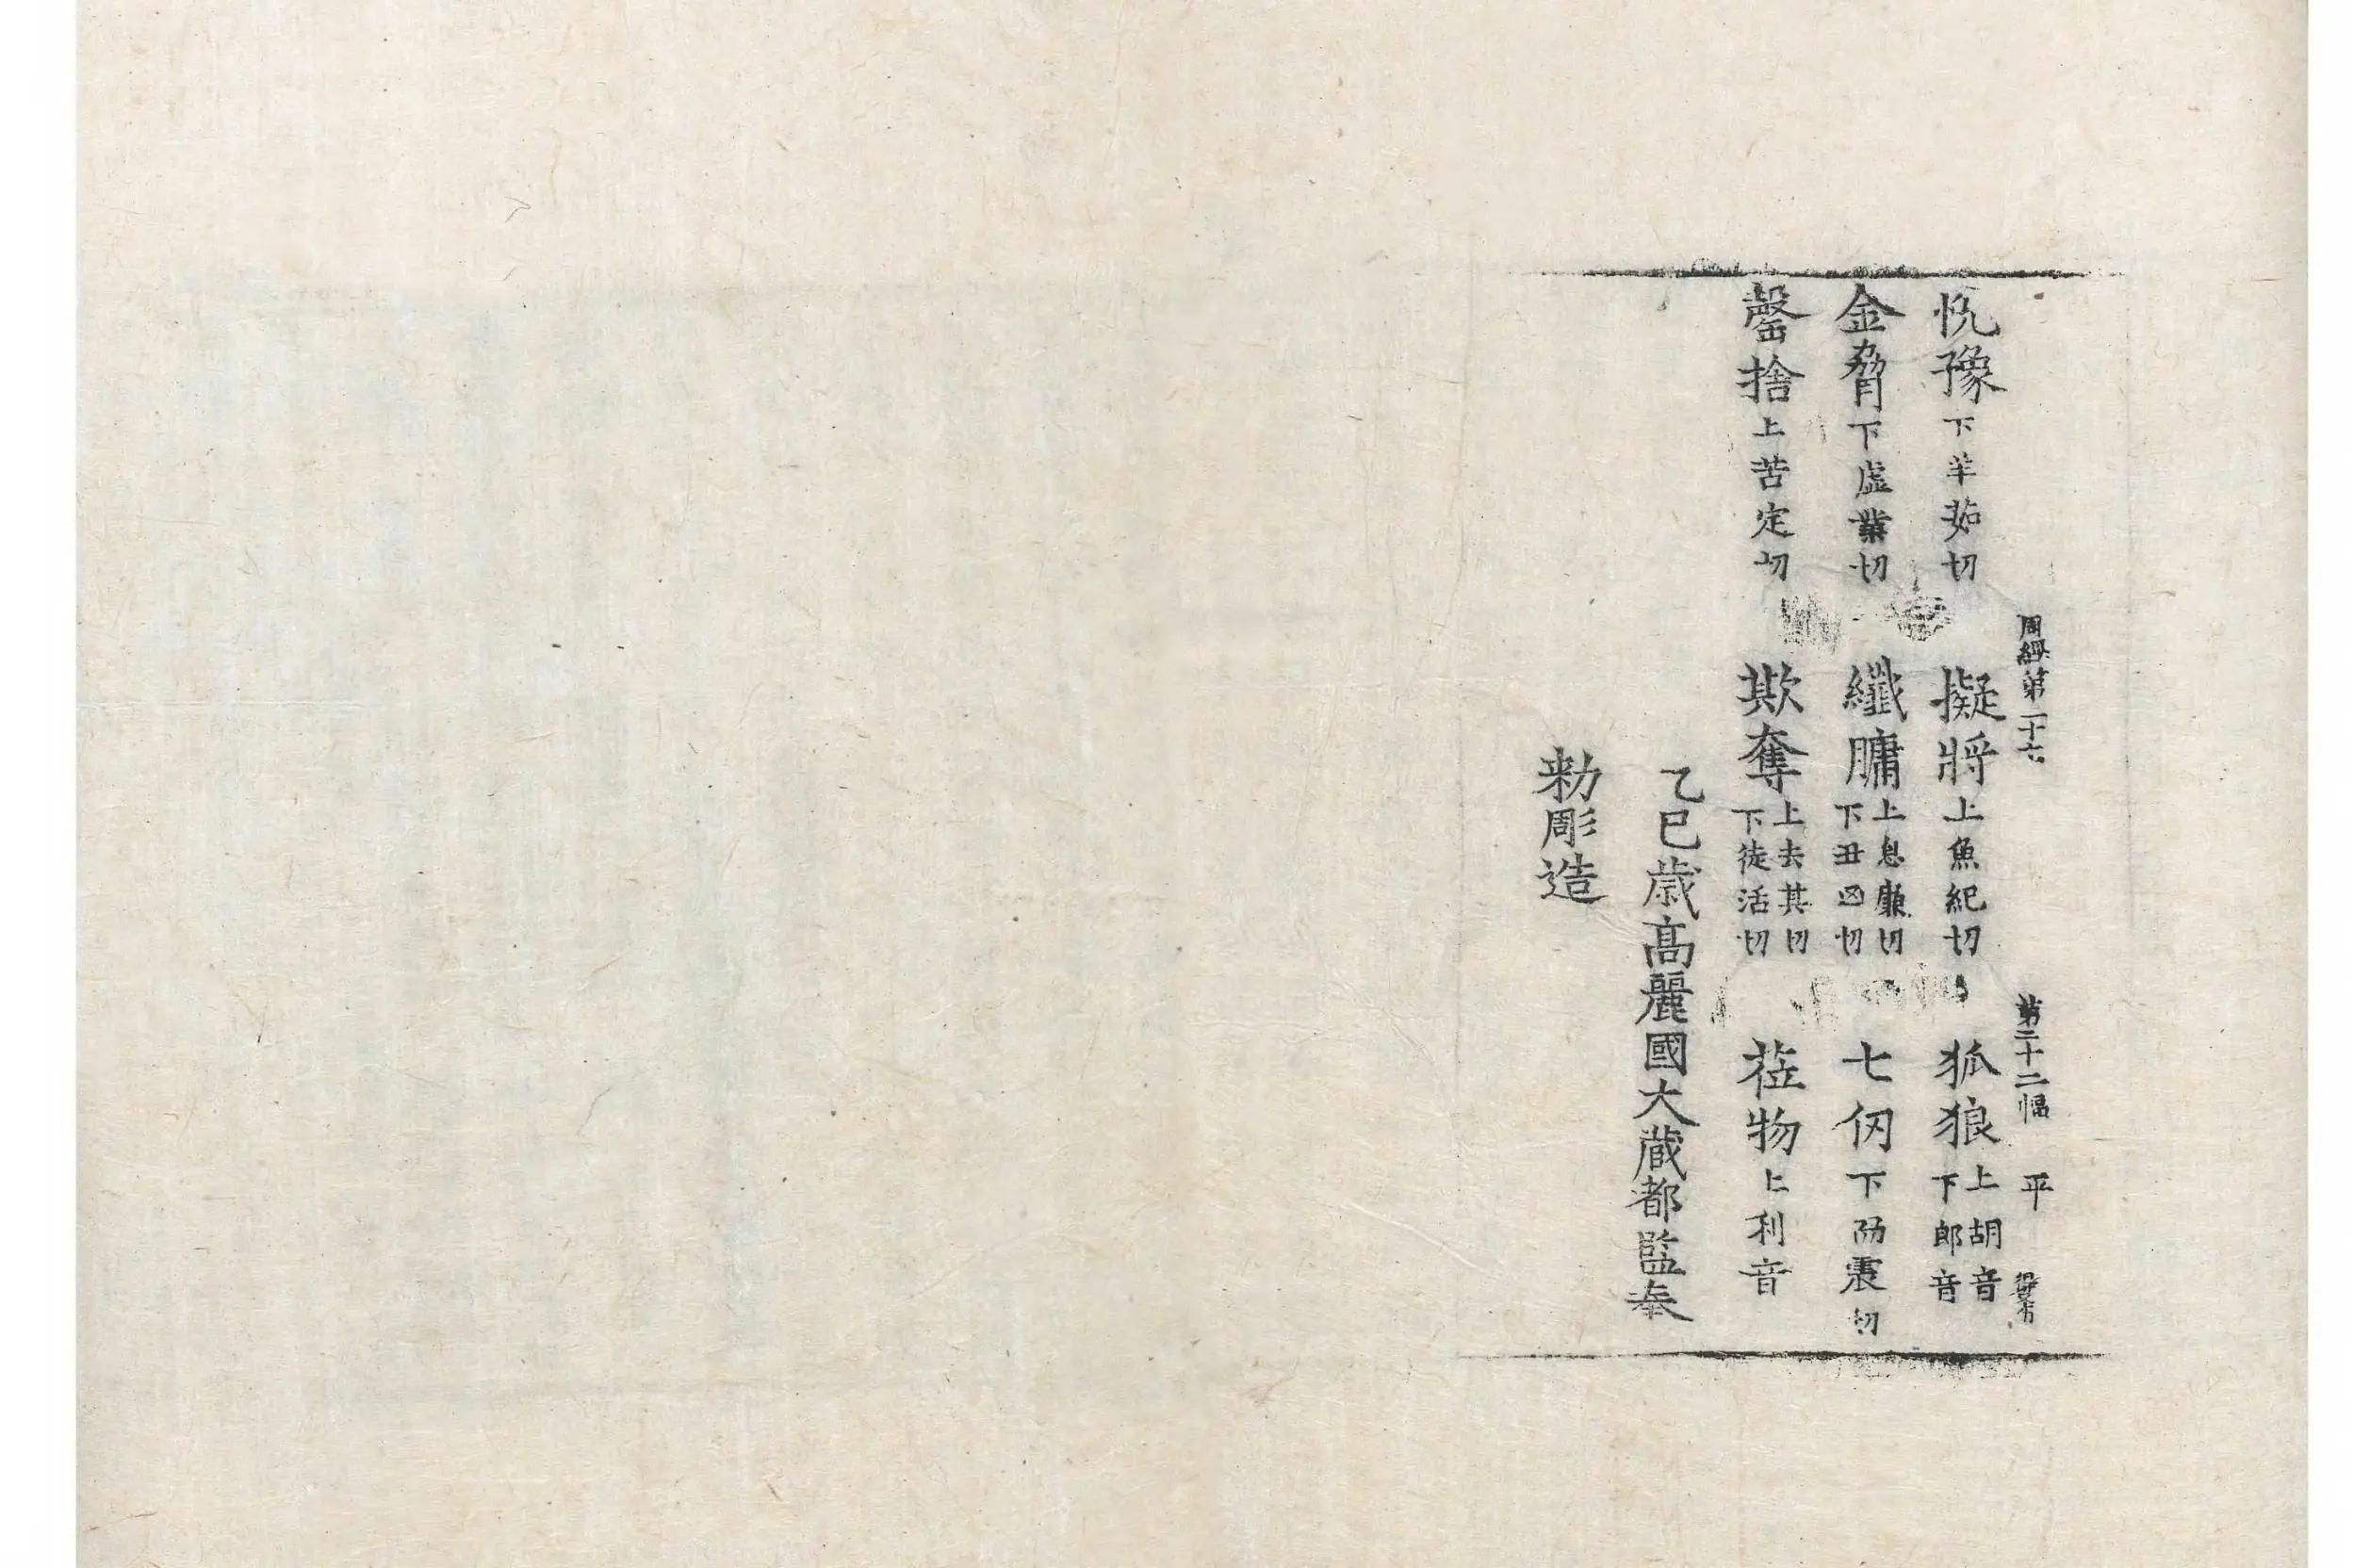 周經第二十六 第二十二幅 平
悅豫下羊茹切 擬將上魚紀切 狐狼上胡音下郎音
金脅下虛業切 纖𦟛上息廉切下丑凶切 七仞下而震切
罄捨上苦定切 欺奪上去其切下徒活切 莅物上利音
乙巳歲高麗國大藏都監奉
勅彫造